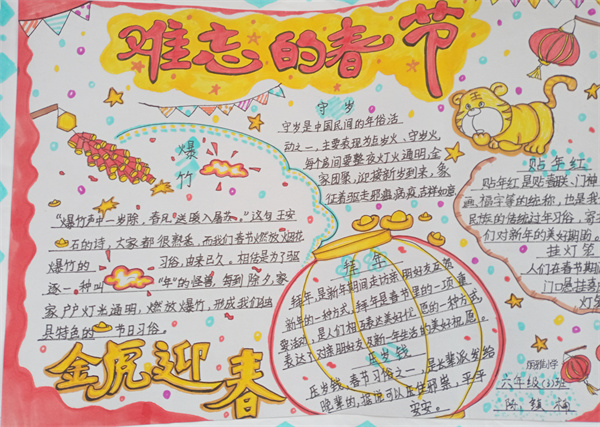 难忘的春节
守岁
守岁是中国民间的年俗活
动之一,主要表现为点岁火、守岁火,
每个房间要整夜灯火通明,全
家团聚,迎接新岁到来,象
征着驱走邪瘟病疫吉祥如意
爆
竹
“爆竹声中一岁除,春风送暖入屠苏。”这句王安
石的诗,大家都很熟悉,而我们春节燃放烟花
爆竹的习俗,由来已久。相传是为了驱
逐一种叫“年”的怪兽,每到除夕,家
家户户灯光通明,燃放爆竹,形成我们独
具特色的节日习俗。
金虎迎春
拜年
拜年,是新年期间走访亲朋好友互贺
新年的一种方式,拜年是春节里的一项重
要活动,是人们相互表达美好祝愿的一种方式,
表达了对亲朋好友及新一年生活的美好祝愿。
压岁钱
压岁钱,春节习俗之一,是长辈派发给
晚辈的,据说可以压住邪祟,平平
安安。
王
贴年红
贴年红是贴春联、门神
画、福字等的统称,也是我
民族的传统过年习俗,寄
们对新年的美好期盼。
挂灯笼
人们在春节期
门口悬挂
灯笼
小学
六年级(3)班
陈